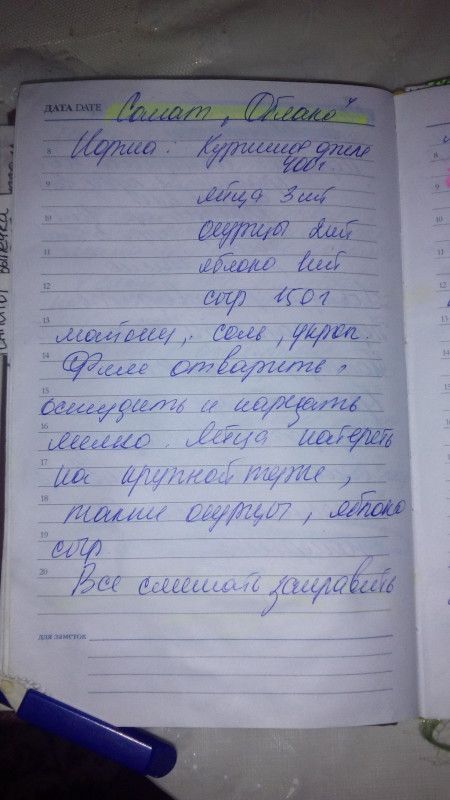 ДАТА DATE Салат "Облако"
8 Норма: Куриное филе
400г.
9 яйца 3шт
10 огурцы 2шт
11 яблоко 1шт
12 сыр 150г
13 майонез, соль, укроп.
14 Филе отварить,
15 остудить и нарезать
16 мелко. Яйца натереть
17 на крупной терке,
18 также огурцы, яблоко
19 сыр
20 Все смешать заправить
для заметок
САЛАТЫ ВЫПЕЧКА
8
9
10
11
12
13
14
15
16
17
18
19
20